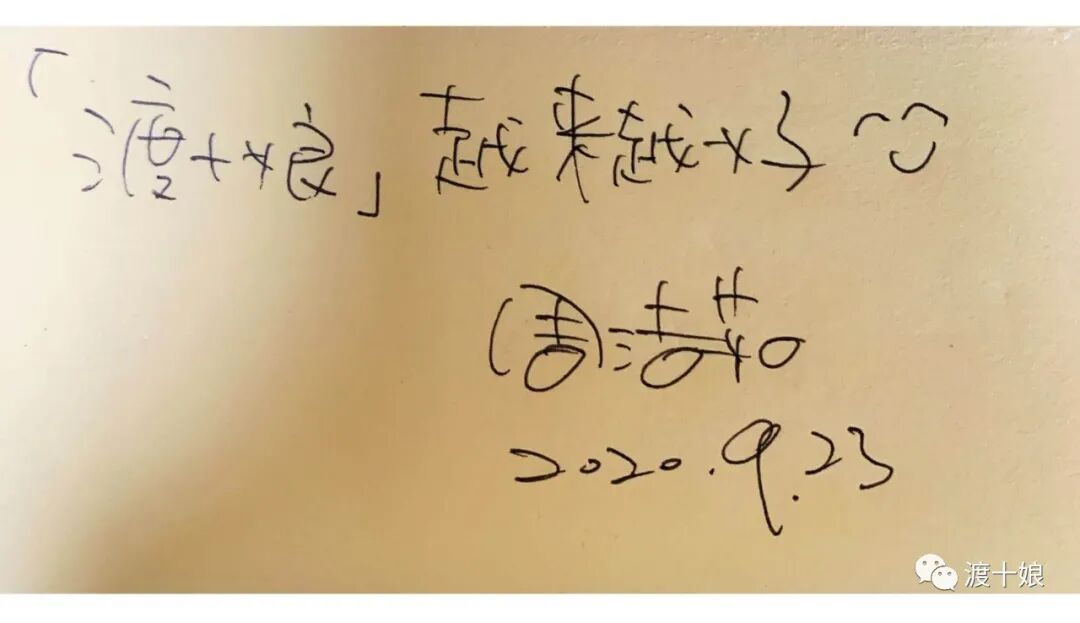 「渡十娘」越来越好
周洁茹
2020.9.23
渡十娘